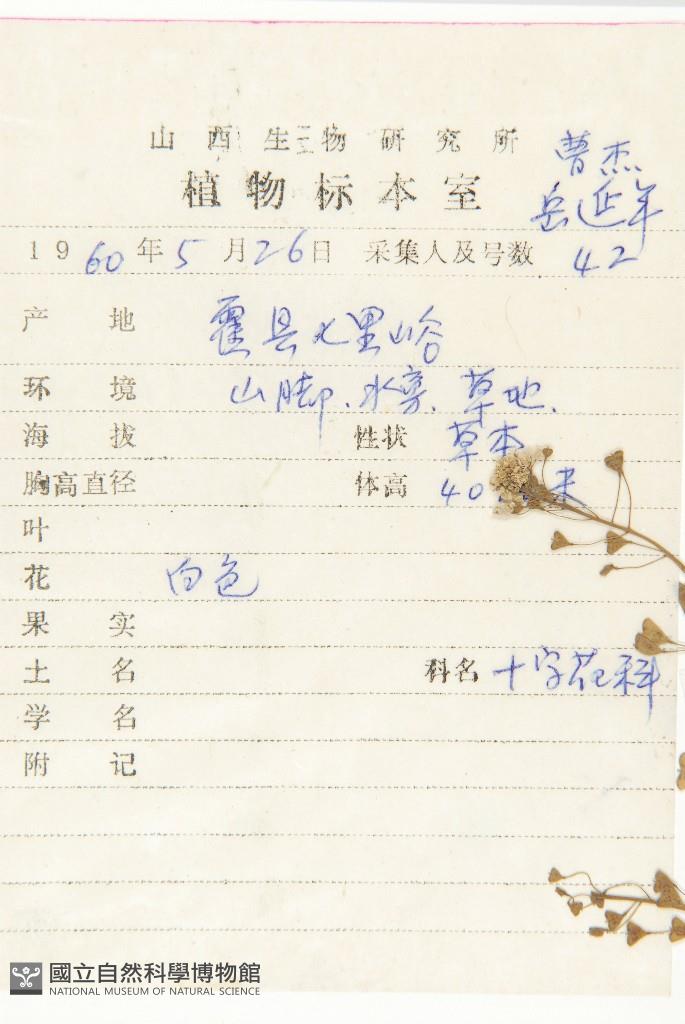 山西生物研究所
植物标本室
曹杰
岳延年
1960年5月26日 采集人及号数 42
产地 霍县七里峪
环境 山脚、水旁、草地、
海拔 性状 草本
胸高直径 体高 40
叶
花 白色
果实
土名 科名 十字花科
学名
附记
國立自然科學博物館
NATIONAL MUSEUM OF NATURAL SCIENCE